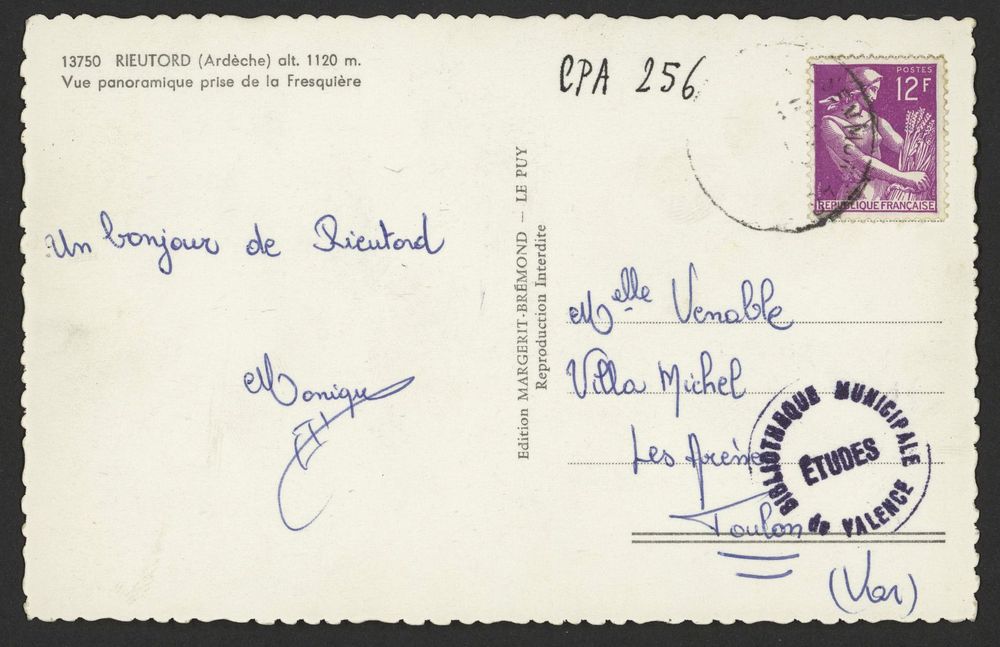 13750 RIEUTORD (Ardèche) alt. 1120 m.
Vue panoramique prise de la Fresquière
CPA 256
POSTES
12F
REPUBLIQUE FRANÇAISE
Un bonjour de Rieutord
Monique
Edition MARGERIT-BRÉMOND - LE PUY
Reproduction Interdite
Melle Venable
Villa Michel
Les
Toulon
(Var)
BIBLIOTHEQUE MUNICIPALE
ÉTUDES
de VALENCE